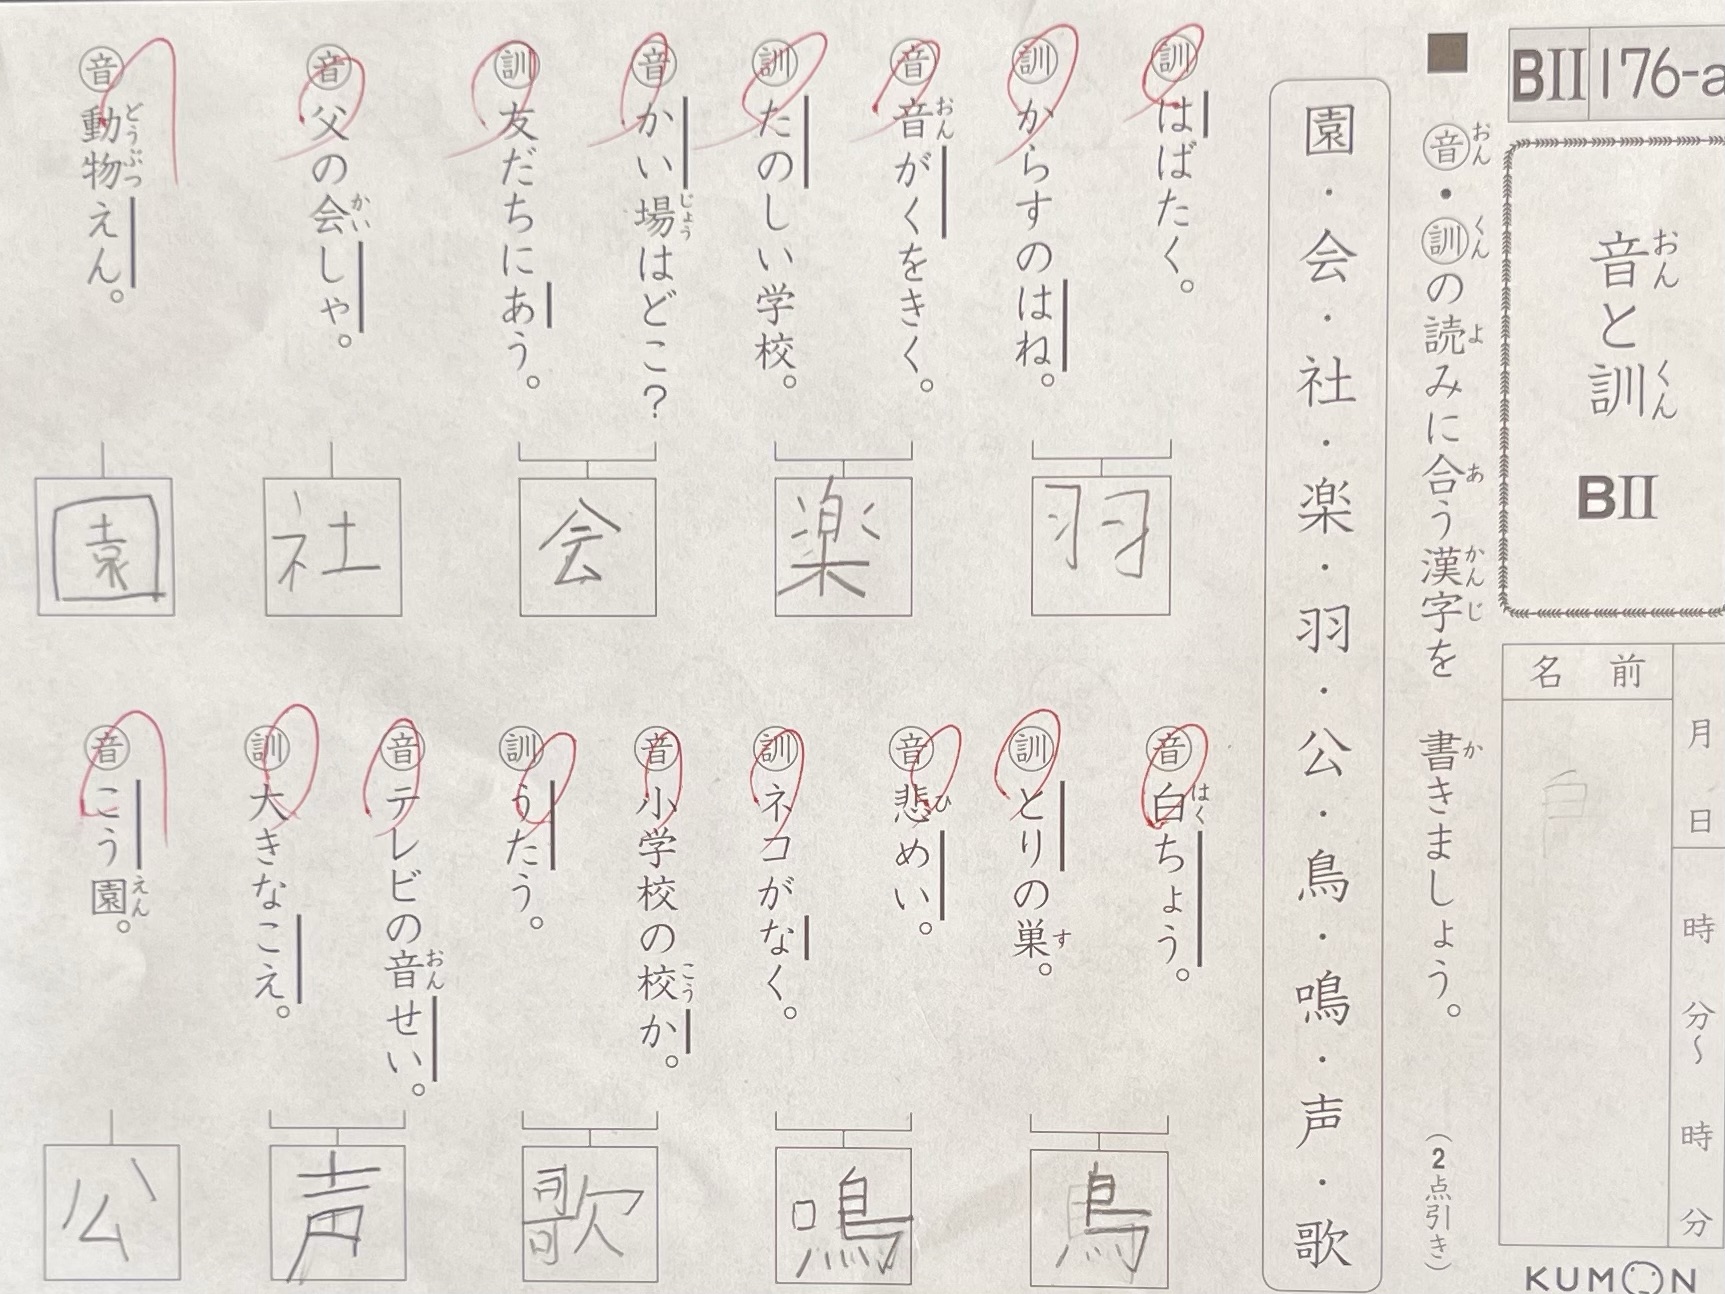 BII 176-a
音と訓
おん
くん
BII
名前
月 日
時 分〜 時 分
KUMON
■
音・訓の読みに合う漢字を 書きましょう。
おん
くん
よ
あ
かんじ
か
（2点引き）
園・会・社・楽・羽・公・鳥・鳴・声・歌
訓 はばたく。
訓 からすのはね。
羽
音 音がくをきく。
おん
訓 たのしい学校。
楽
音 かい場はどこ？
じょう
訓 友だちにあう。
会
音 父の会しゃ。
かい
社
音 動物えん。
どうぶつ
園
音 白ちょう。
はく
訓 とりの巣。
す
鳥
音 悲めい。
ひ
訓 ネコがなく。
鳴
音 小学校の校か。
こう
訓 うたう。
歌
音 テレビの音せい。
おん
訓 大きなこえ。
声
音 こう園。
えん
公